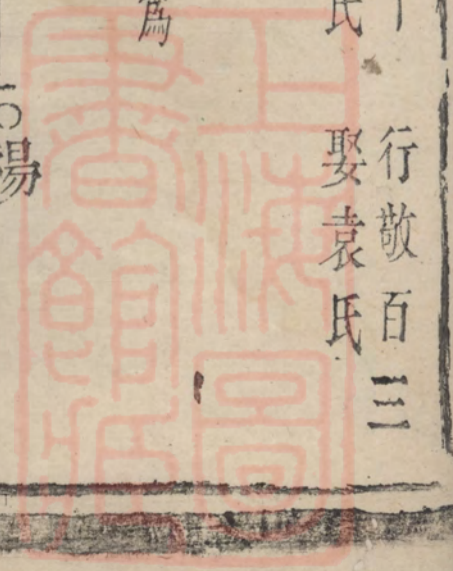 行敬百三
氏 娶袁氏
爲
上海圖
書館藏